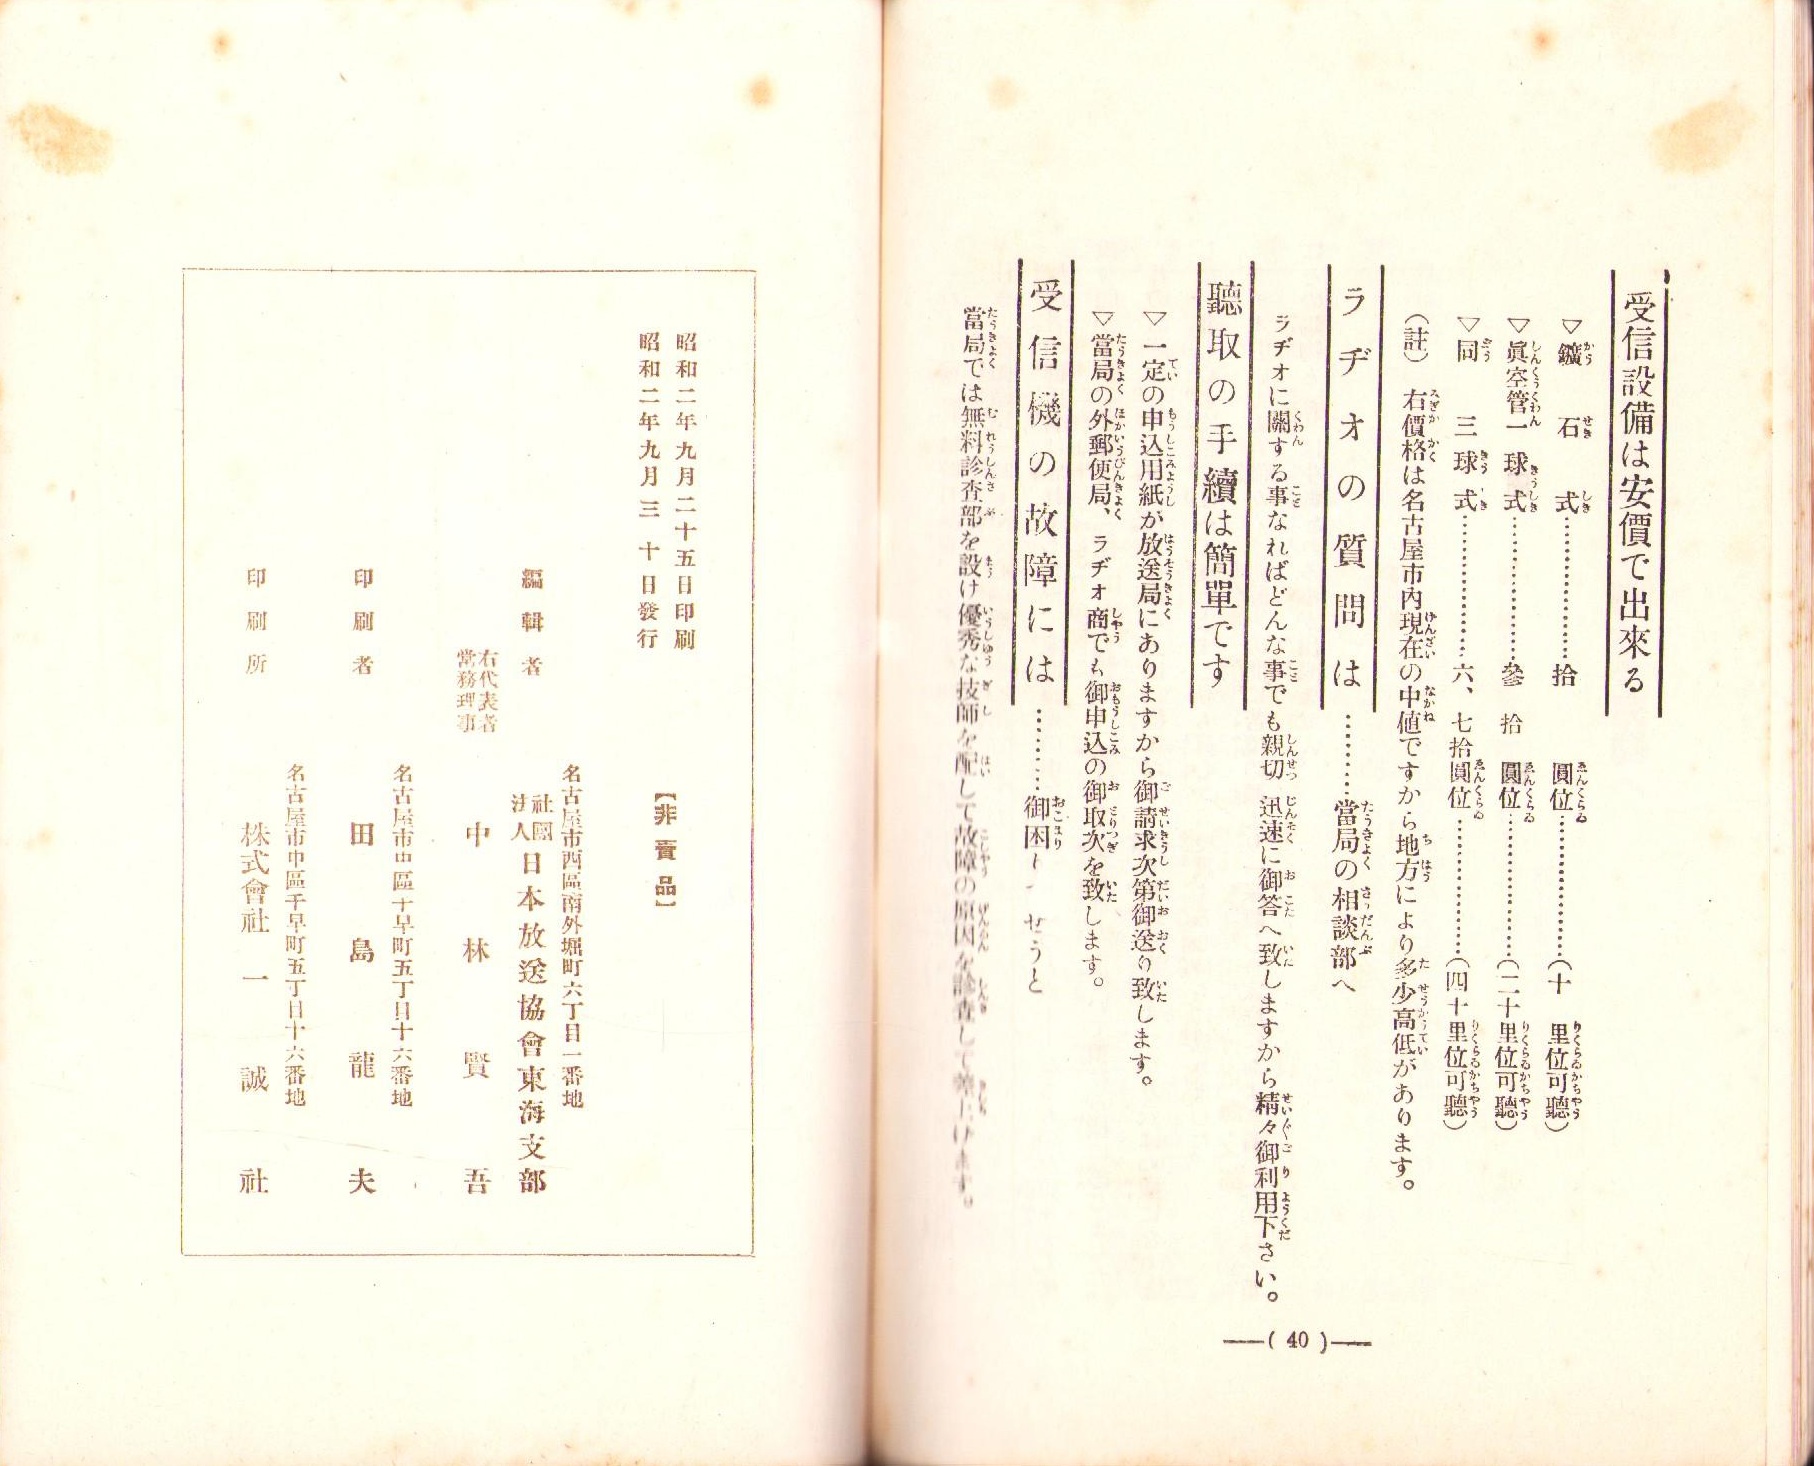 受信設備は安價で出來る
▽鑛石式……………拾圓位……………(十里位可聽)
▽眞空管一球式……………參拾圓位……………(二十里位可聽)
▽同三球式……………六、七拾圓位……………(四十里位可聽)
(註) 右價格は名古屋市內現在の中値ですから地方により多少高低があります。
ラヂオの質問は………當局の相談部へ
ラヂオに關する事なればどんな事でも親切迅速に御答へ致しますから精々御利用下さい。
聽取の手續は簡單です
▽一定の申込用紙が放送局にありますから御請求次第御送り致します。
▽當局の外郵便局、ラヂオ商でも御申込の御取次を致します。
受信機の故障には………御困りでせうと
當局では無料診査部を設け優秀な技師を配して故障の原因を診査して差上げます。
―( 40 )―
昭和二年九月二十五日印刷
昭和二年九月三十日發行
【非賣品】
名古屋市西區南外堀町六丁目一番地
編輯者 社團法人 日本放送協會東海支部
右代表者常務理事 中林賢吾
名古屋市中區千早町五丁目十六番地
印刷者 田島龍夫
名古屋市中區千早町五丁目十六番地
印刷所 株式會社 一誠社